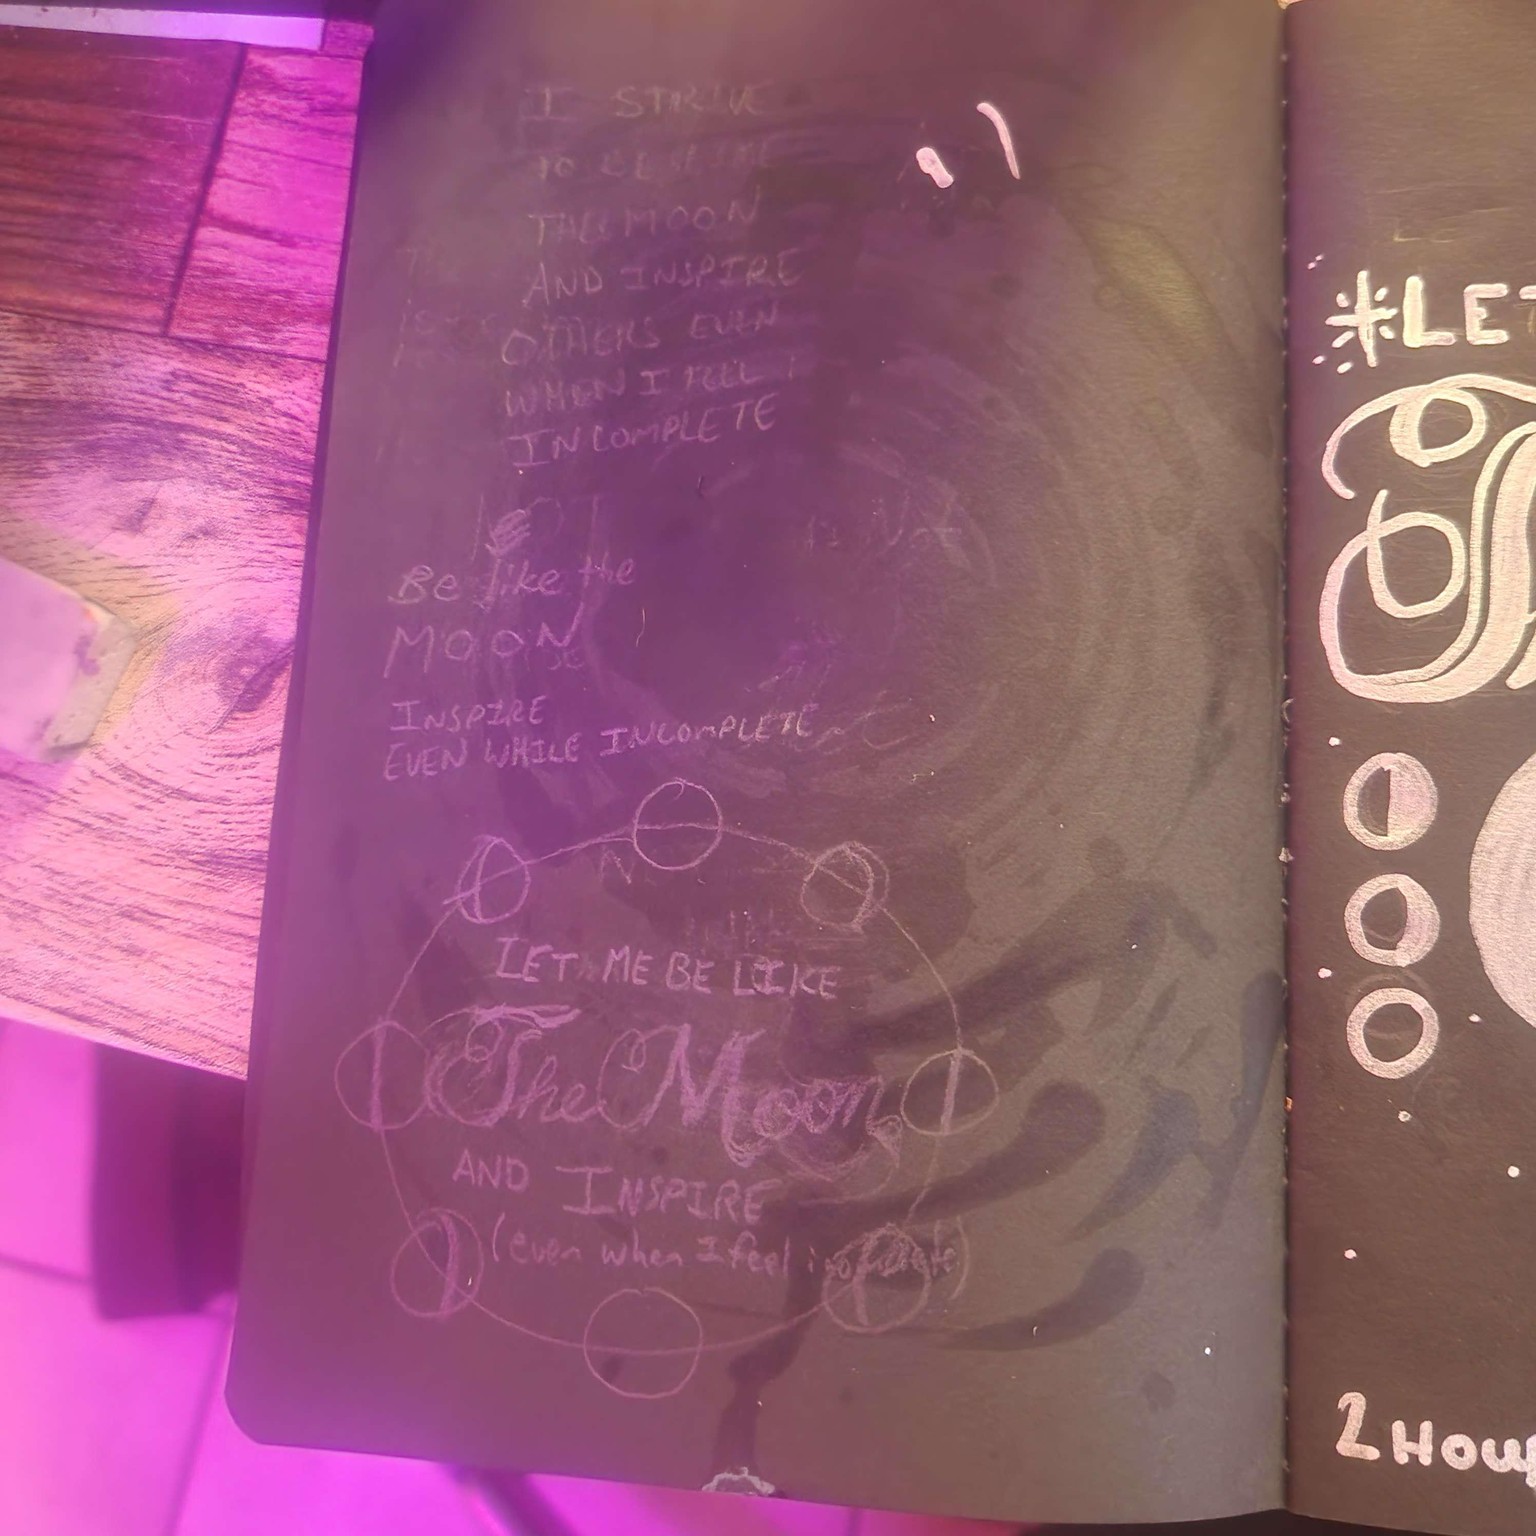 I STRIVE
TO BE LIKE
THE MOON
AND INSPIRE
OTHERS EVEN
WHEN I FEEL
INCOMPLETE
Be like the
MOON
INSPIRE
EVEN WHILE INCOMPLETE
LET ME BE LIKE
The Moon
AND INSPIRE
(even when I feel incomplete)
LET
2 Hou